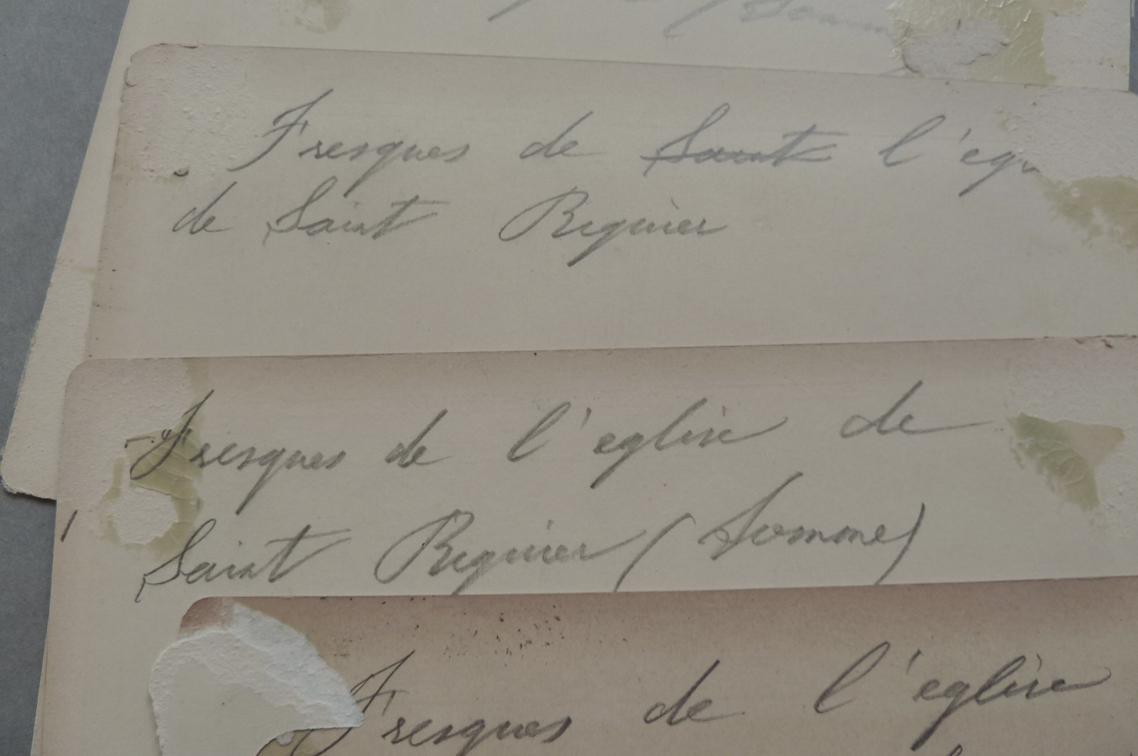 (Somm
Fresques de Saint l'eg
de Saint Riquier
Fresques de l'eglise de
Saint Riquier (Somme)
Fresques de l'eglise